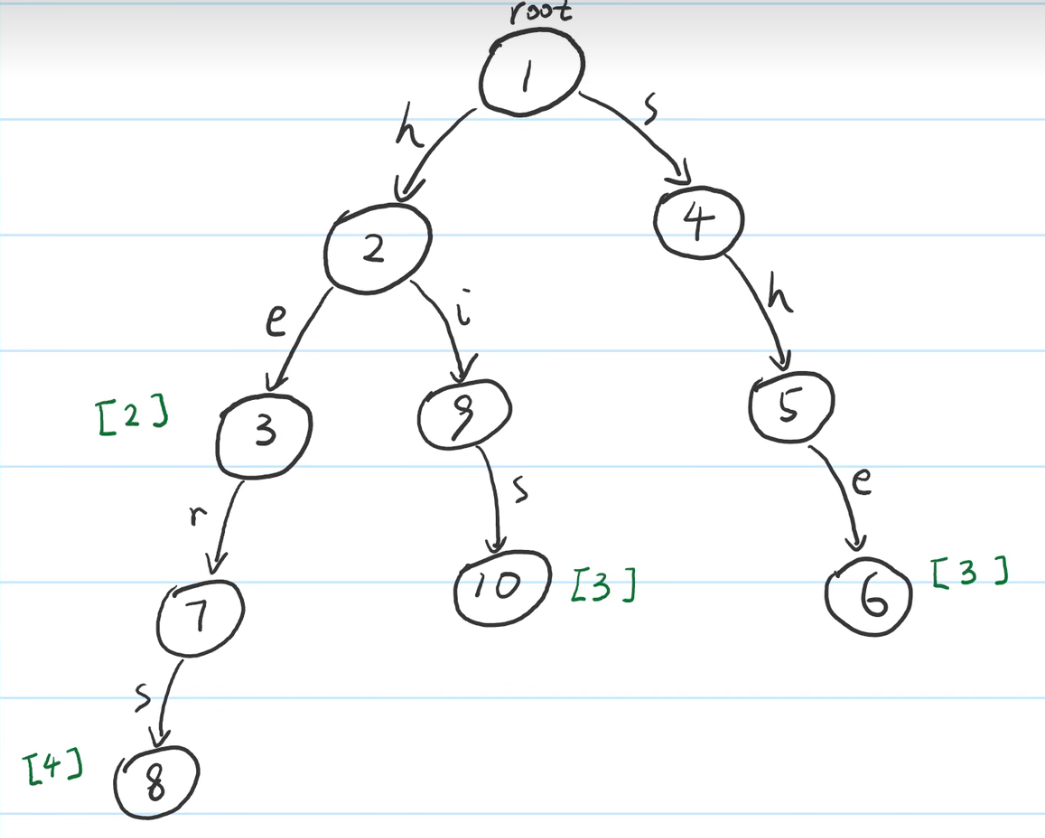 root
1
h
s
2
4
e
i
h
[2]
3
9
5
r
s
e
7
10
[3]
6
[3]
s
[4]
8